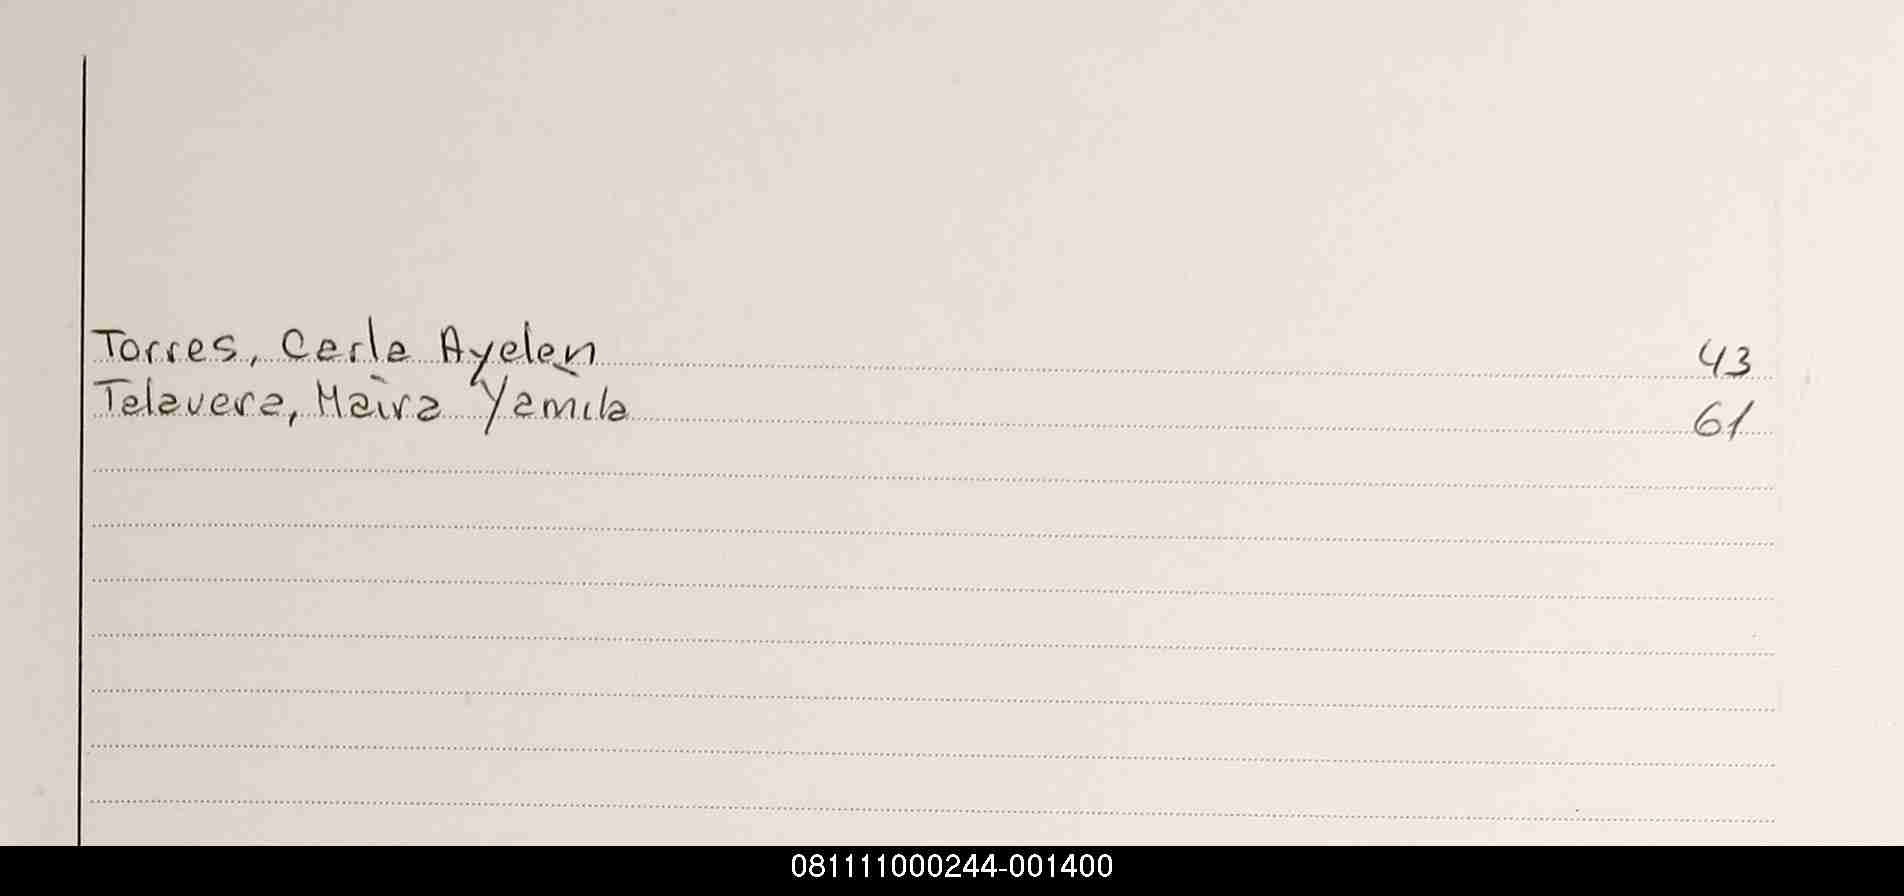 Torres, Carla Ayelèn 43
Talavera, Maìra Yamila 61
081111000244-001400